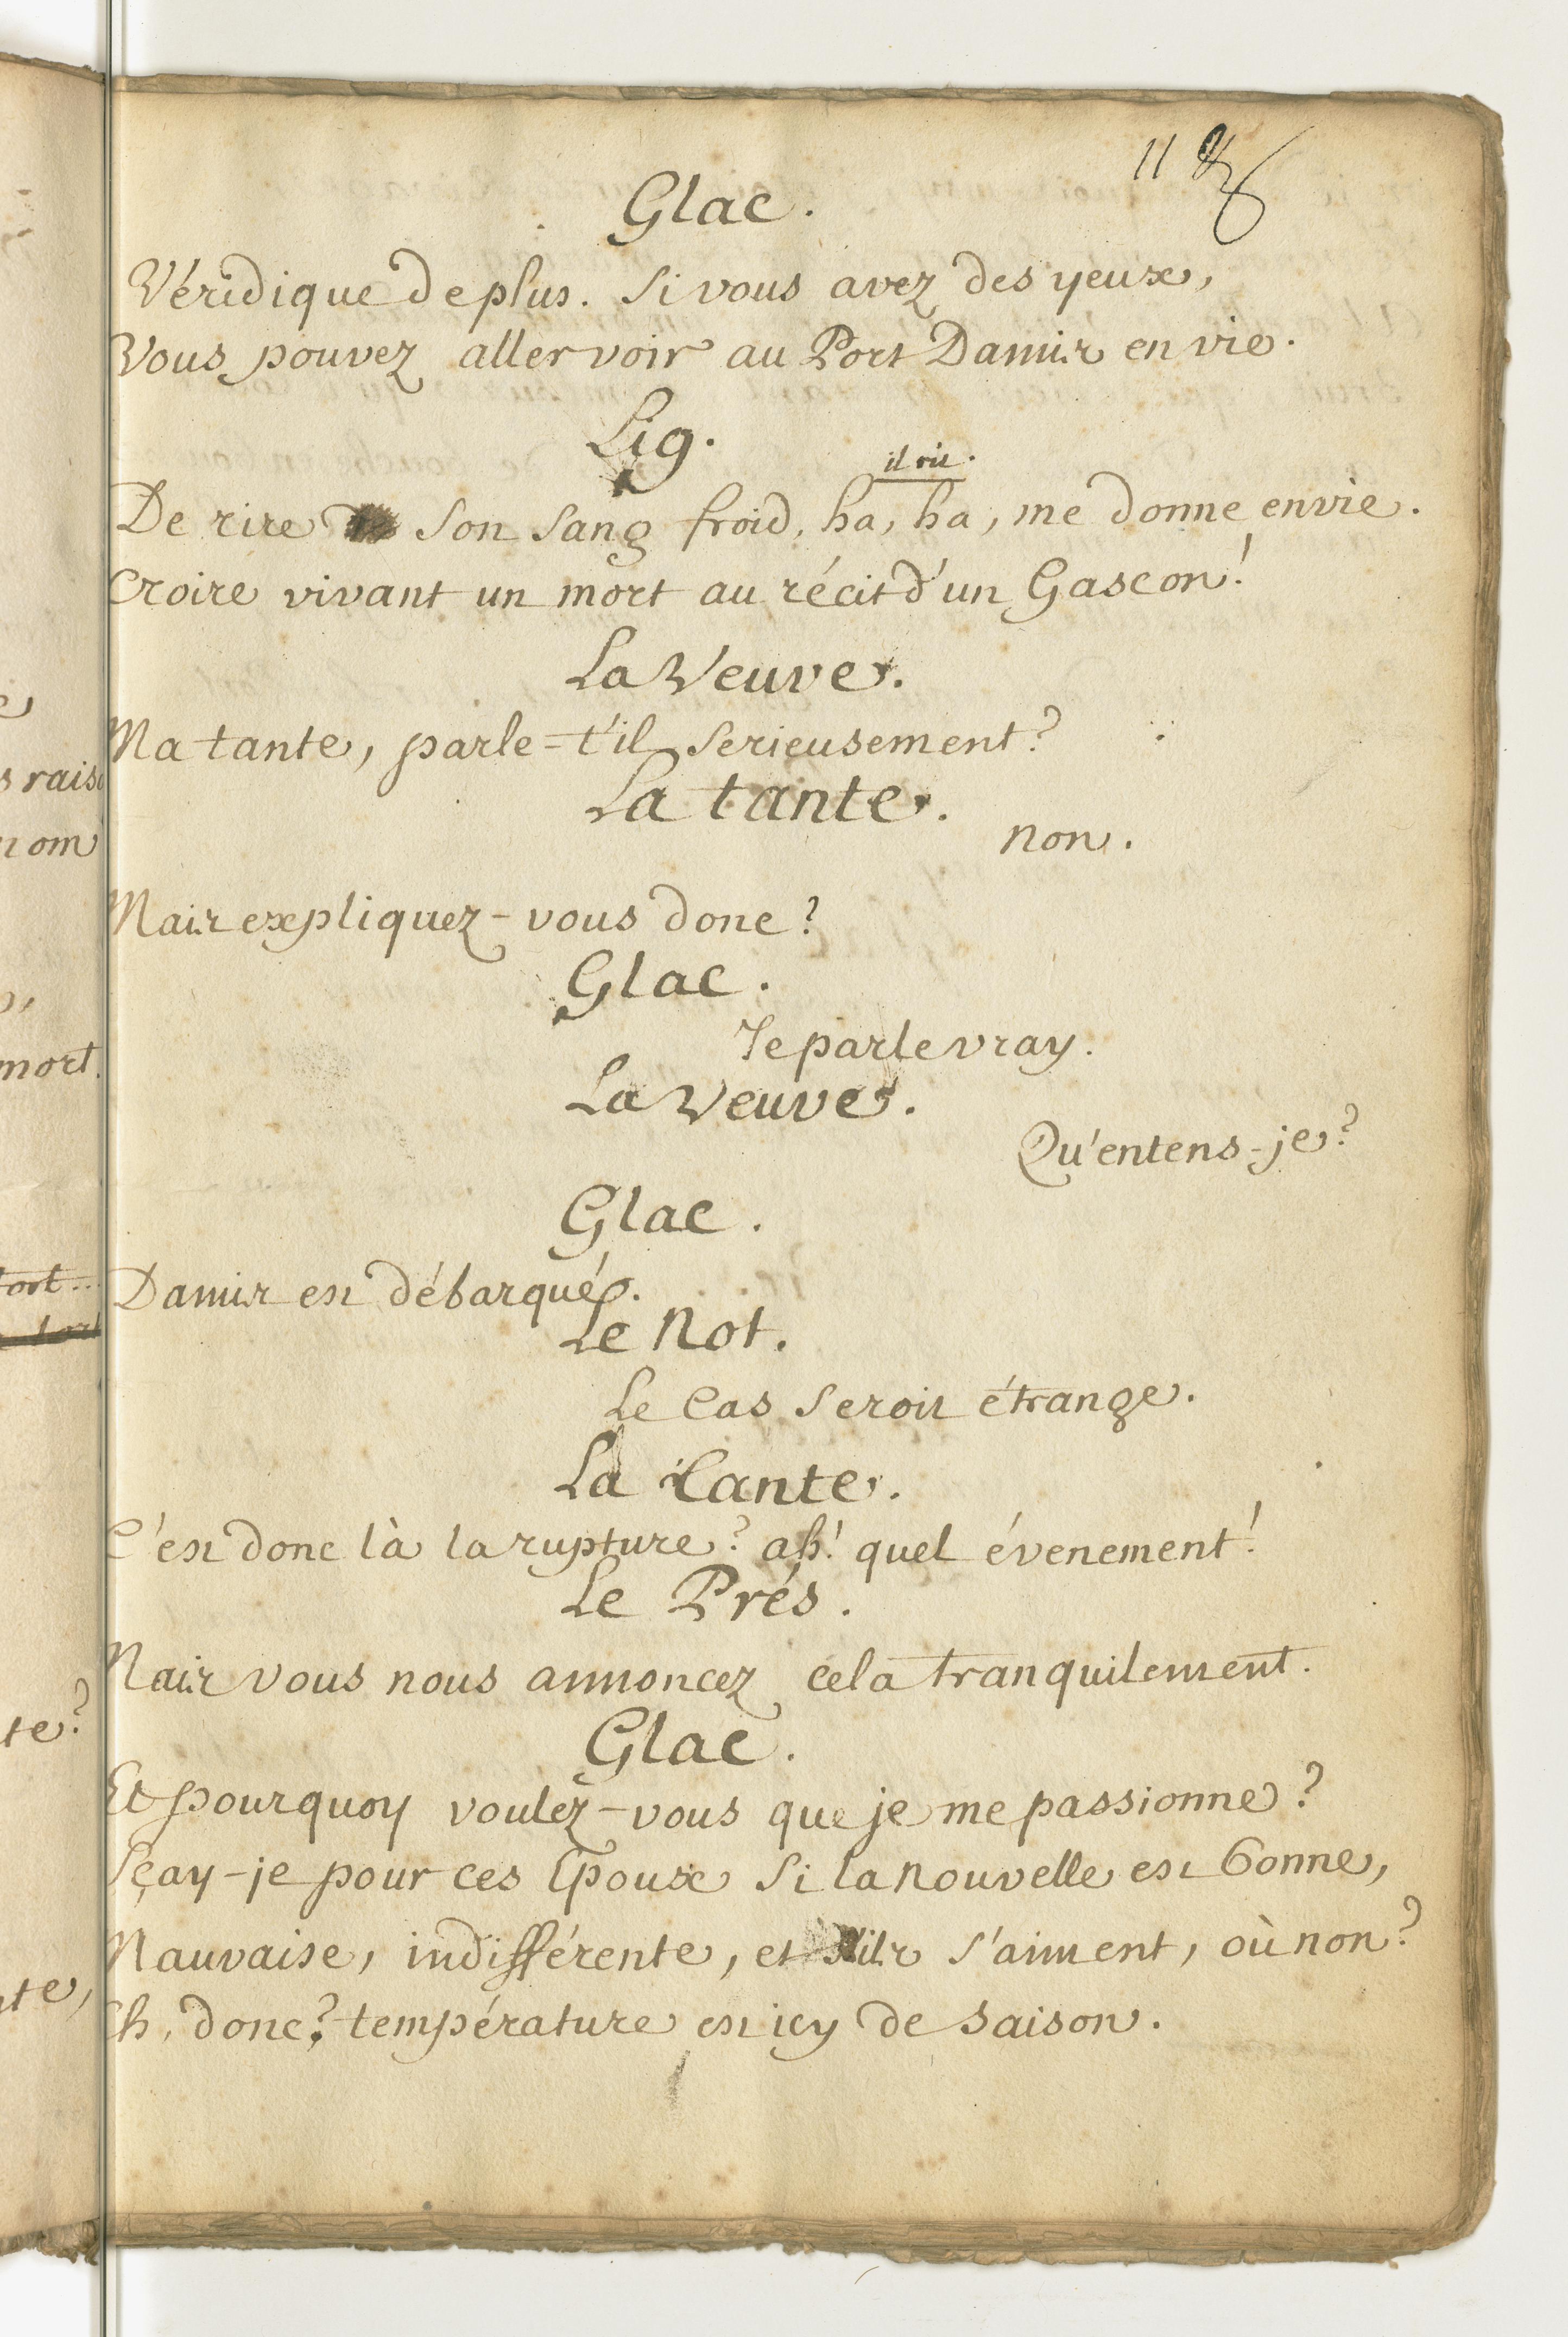 116
Glac.
Véridique de plus. Si vous avez des yeux,
Vous pouvez aller voir au Port Damis en vie.
Lig.
il rit.
De rire son sang froid, ha, ha, me donne envie.
Croire vivant un mort au récit d'un Gascon!
La Veuve.
Ma tante, parle-t'il serieusement?
La tante.
non.
Mais expliquez-vous donc?
Glac.
Je parle vray.
La Veuve.
Qu'entens-je?
Glac.
Damis est débarqué.
Le Not.
Le Cas seroit étrange.
La Tante.
C'est donc là la rupture? ah! quel évenement!
Le Prés.
Mais vous nous annoncez cela tranquilement.
Glac.
Et pourquoy voulez-vous que je me passionne?
Sçay-je pour ces Epoux si la nouvelle est bonne,
Mauvaise, indifférente, et s'ils s'aiment, où non?
Eh, donc? température est icy de saison.